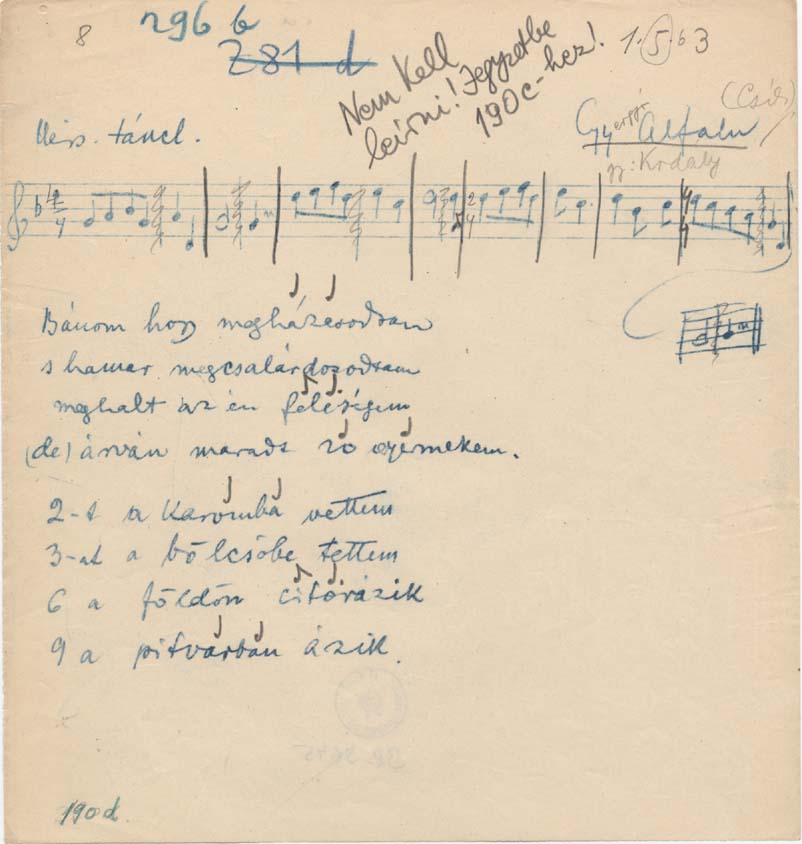 8
296 b
281 d
Nem Kell
leírni! Jegyzetbe
190c-hez!
1. 5 b3
(Csík)
Gyergyó Alfalu
gy: Kodály
táncl.
Bánom hogy megházasodtam
s hamar megcsalárdosodtam
meghalt az én feleségem
(de) árván maradt 20 gyermekem.
2-t a karomba vettem
3-at a bölcsőbe tettem
6 a földön citorázik
9 a pitvarban ázik.
190d.